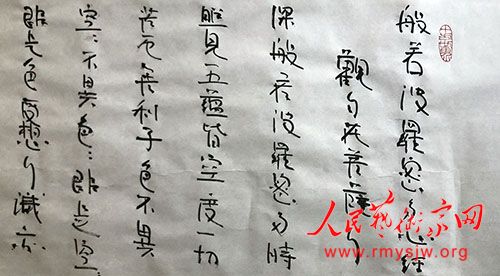 般若波羅蜜多心經
觀自在菩薩行
深般若波羅蜜多時
照見五蘊皆空度一切
苦厄舍利子色不異
空〻不異色〻即是空〻
即是色受想行識亦
人民藝術家网
www.rmysjw.org